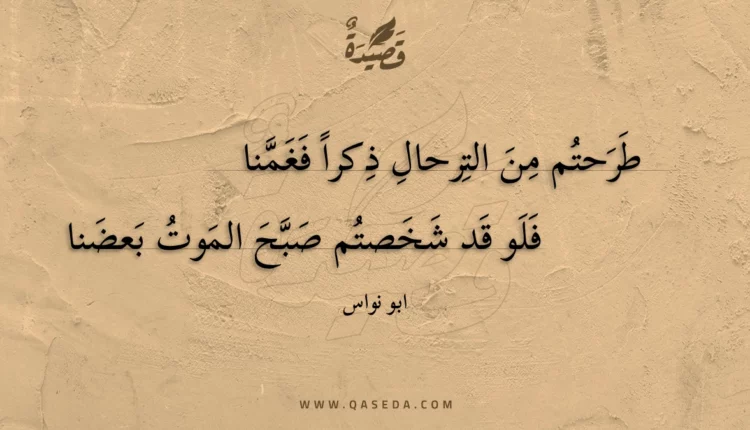 قَصِيْدَةٌ
طَرَحتُم مِنَ التِرحالِ ذِكراً فَغَمَّنا
فَلَو قَد شَخَصتُم صَبَّحَ المَوتُ بَعضَنا
ابو نواس
WWW.QASEDA.COM